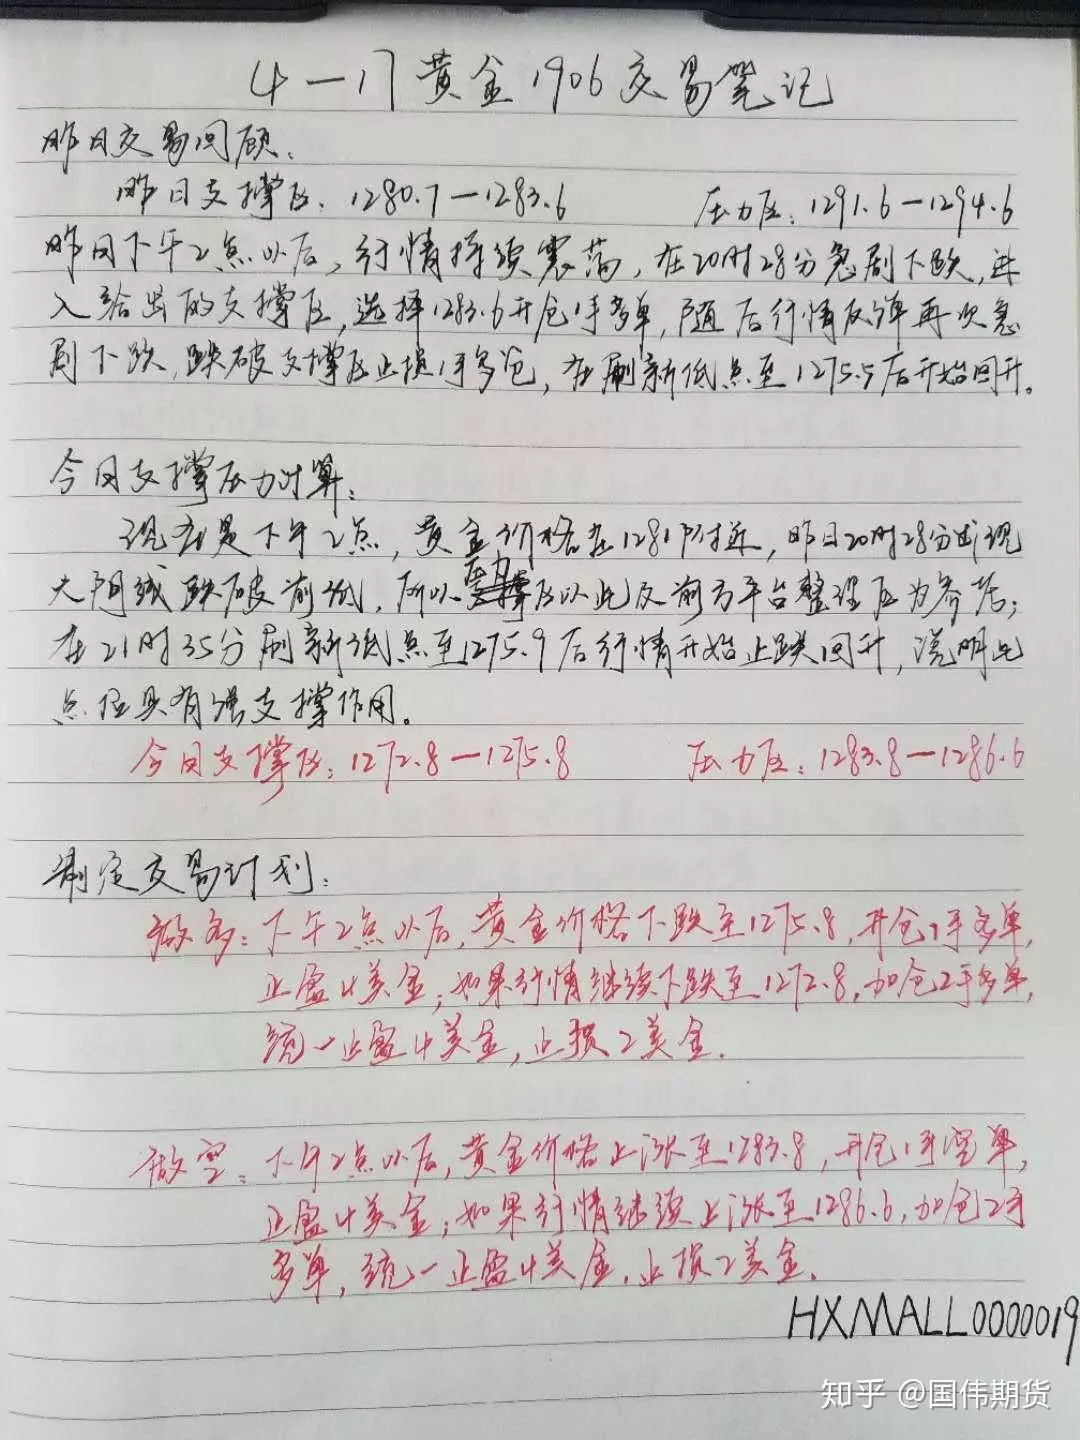 4－17黄金1906交易笔记
昨日交易回顾：
昨日支撑区：1280.7－1283.6 压力区：1291.6－1294.6
昨日下午2点以后，行情持续震荡，在20时28分急剧下跌，进
入给出的支撑区，选择1283.6开仓1手多单，随后行情反弹再次急
剧下跌，跌破支撑区止损1手多仓，在刷新低点至1275.5后开始回升。
今日支撑压力计算：
现在是下午2点，黄金价格在1281附近，昨日20时28分出现
大阴线跌破前低，所以压力区以此及前方平台整理区为参活；
在21时35分刷新低点至1275.9后行情开始止跌回升，说明此
点位具有强支撑作用。
今日支撑区：1272.8－1275.8 压力区：1283.8－1286.6
制定交易计划：
做多：下午2点以后，黄金价格下跌至1275.8，开仓1手多单，
止盈4美金；如果行情继续下跌至1272.8，加仓2手多单，
统一止盈4美金，止损2美金．
做空：下午2点以后，黄金价格上涨至1283.8，开仓1手空单，
止盈4美金；如果行情继续上涨至1286.6，加仓2手
多单，统一止盈4美金，止损2美金．
HXMALL0000019
知乎 @国伟期货